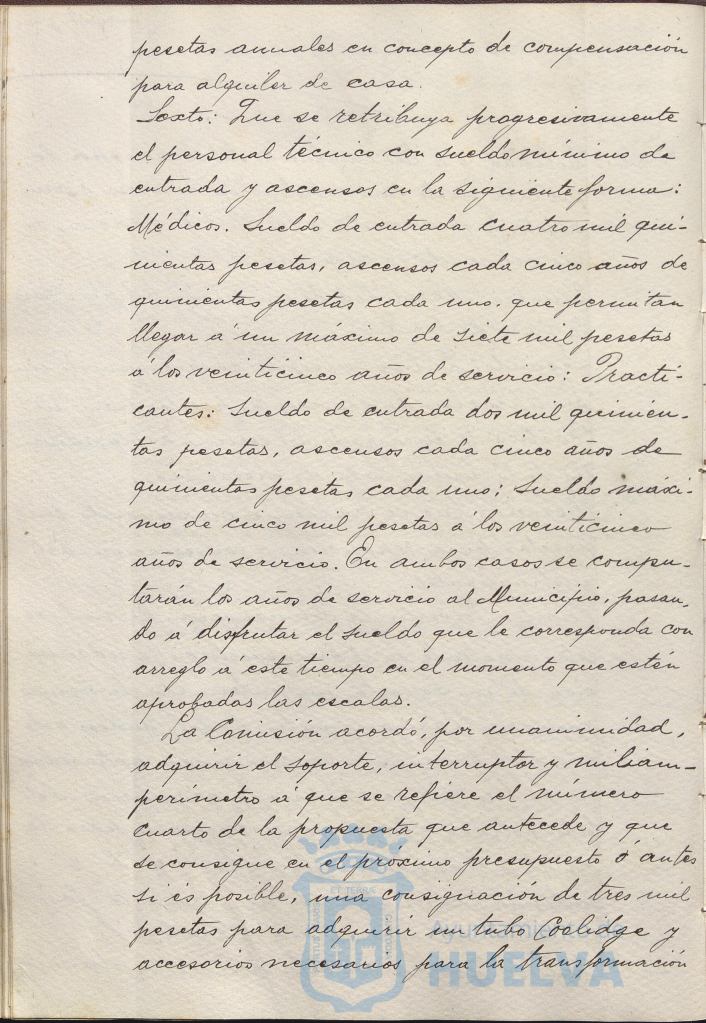 pesetas anuales en concepto de compensación
para alquiler de casa.
Sexto: Que se retribuya progresivamente
el personal técnico con sueldo mínimo de
entrada y ascensos en la siguiente forma:
Médicos. Sueldo de entrada cuatro mil qui-
nientas pesetas, ascensos cada cinco años de
quinientas pesetas cada uno, que permitan
llegar á un máximo de siete mil pesetas
á los veinticinco años de servicio: Practi-
cantes: Sueldo de entrada dos mil quinien-
tas pesetas, ascensos cada cinco años de
quinientas pesetas cada uno; Sueldo máxi-
mo de cinco mil pesetas á los veinticinco
años de servicio. En ambos casos se compu-
tarán los años de servicio al Municipio, pasan-
do á disfrutar el sueldo que le corresponda con
arreglo á este tiempo en el momento que estén
aprobadas las escalas.
La Comisión acordó, por unanimidad,
adquirir el soporte, interruptor y miliam-
perímetro á que se refiere el número
cuarto de la propuesta que antecede y que
se consigue en el próximo presupuesto ó antes
si és posible, una consignación de tres mil
pesetas para adquirir un tubo Coolidge y
accesorios necesarios para la transformación
Ayuntamiento de
HUELVA